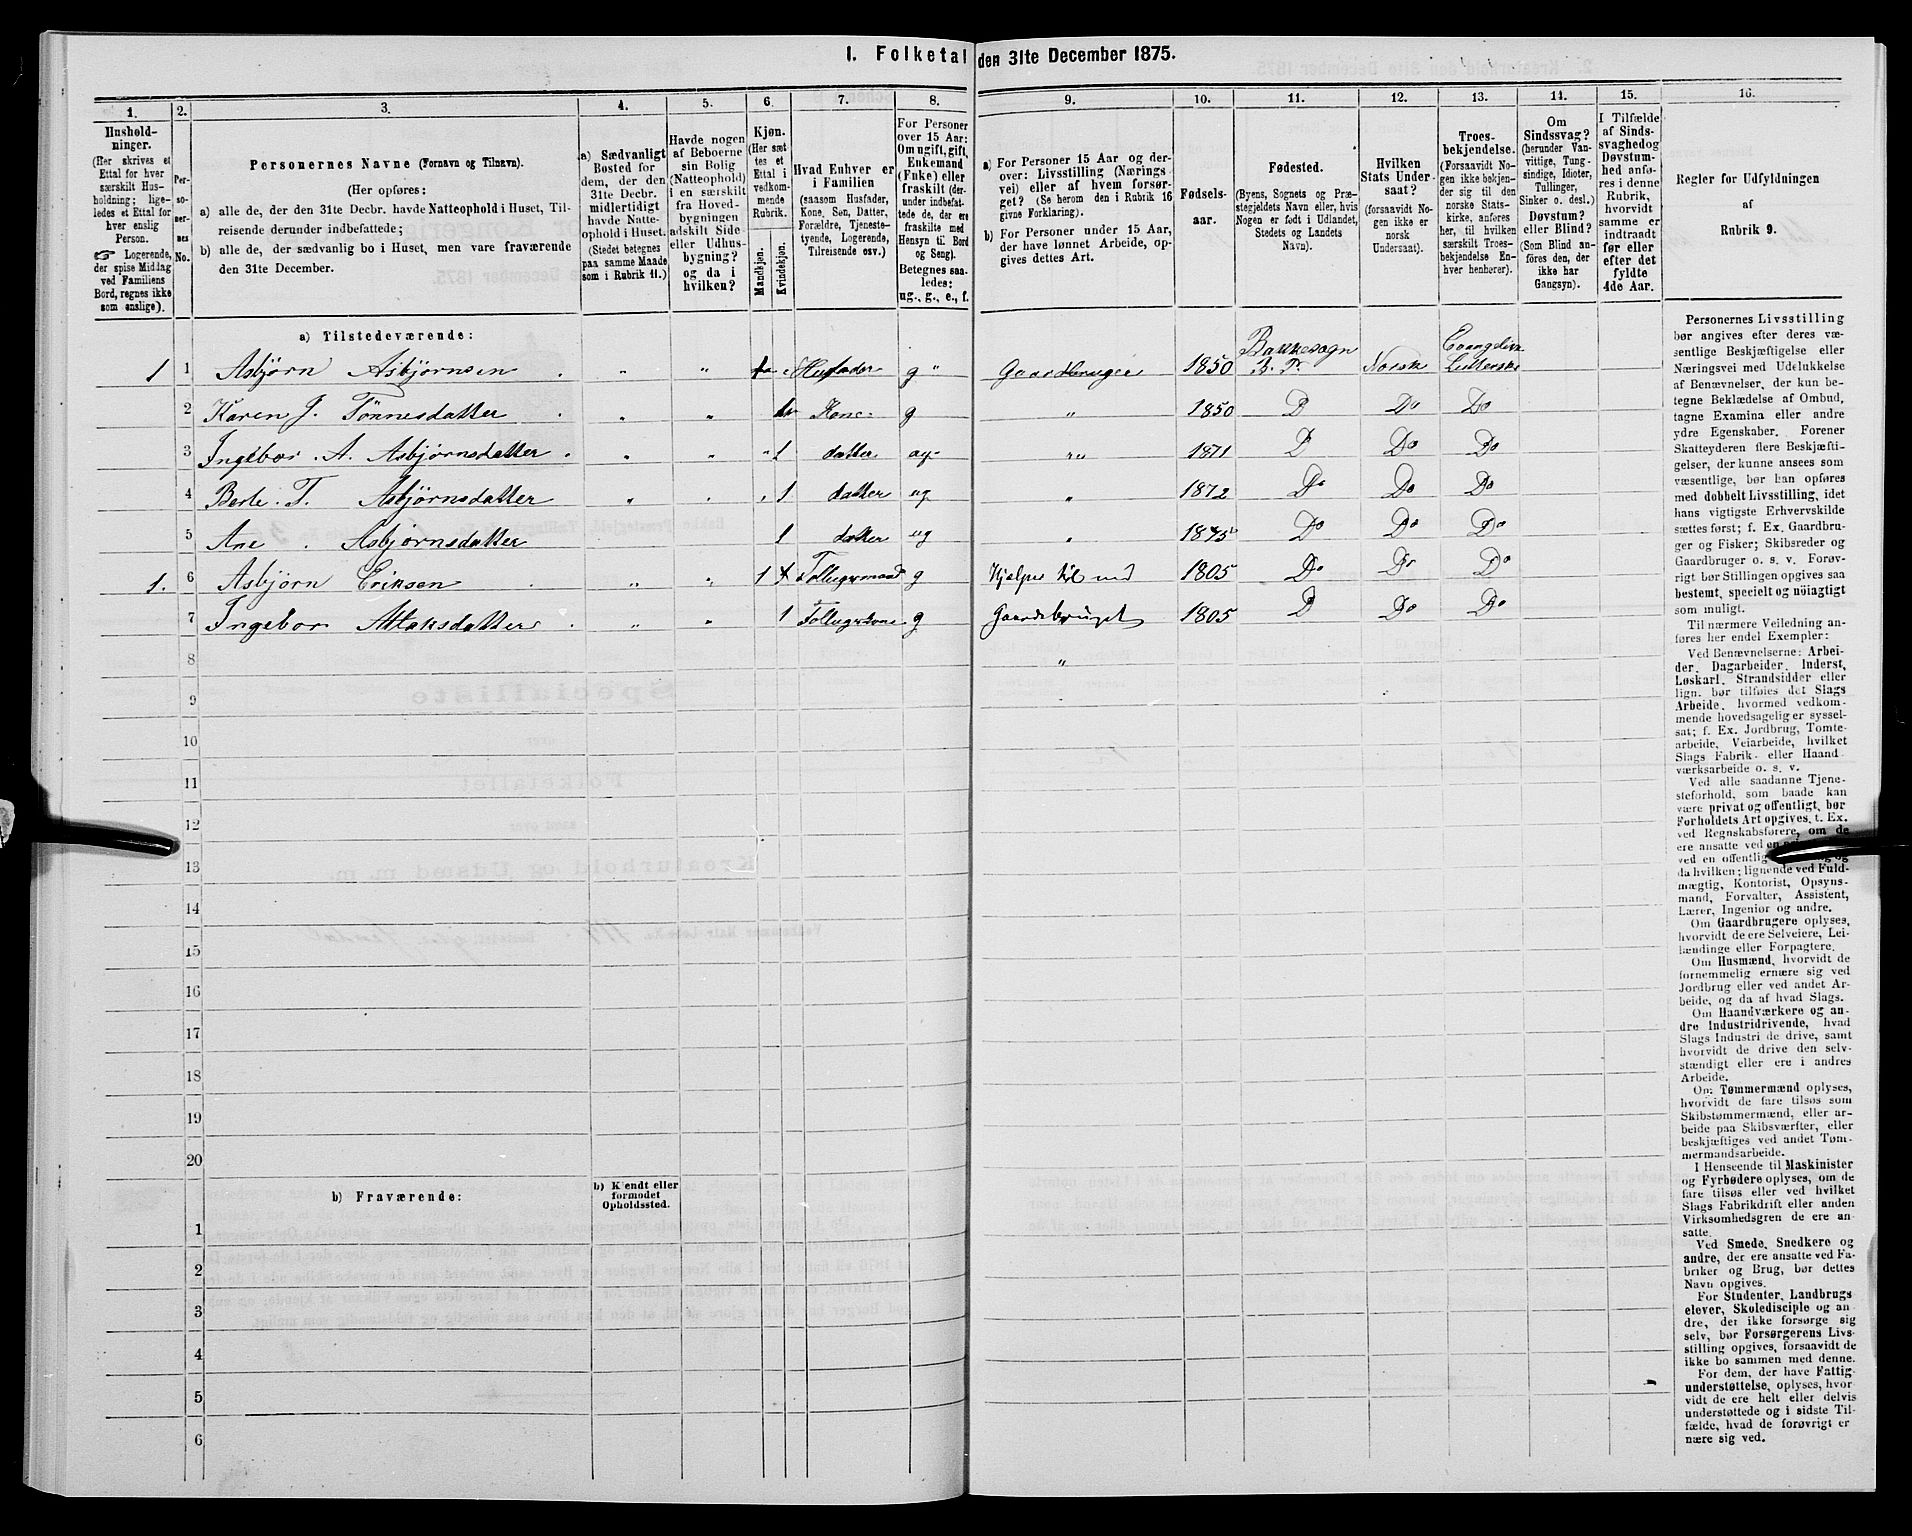 I. Folketal den 31te December 1875.
1. 2. 3. 4. 5. 6. 7. 8. 9. 10. 11. 12. 13. 14. 15. 16.
Hushold-
ninger.
(Her skrives et
Ettal for hver
særskilt Hus-
holdning; lige-
ledes et Ettal for
hver enslig
Person.
☞ Logerende,
der spise Middag
ved Familiens
Bord, regnes ikke
som enslige).
Per-
so-
ner-
nes
No.
Personernes Navne (Fornavn og Tilnavn).
(Her opføres:
a) alle de, der den 31te Decbr. havde Natteophold i Huset, Til-
reisende derunder indbefattede;
b) alle de, der sædvanlig bo i Huset, men vare fraværende
den 31te December.
a) Sædvanligt
Bosted for
dem, der den
31te Decbr.
midlertidigt
havde Natte-
ophold i Huset.
(Stedet betegnes
paa samme Maade
som i Rubrik 11.)
Havde nogen
af Beboerne
sin Bolig
(Natteophold)
i en særskilt
fra Hoved-
bygningen
adskilt Side
eller Udhus-
bygning?
og da i
hvilken?
Kjøn.
(Her sæt-
tes et
Ettal i
vedkom-
mende
Rubrik.
Mandkjøn.
Kvindekjøn.
Hvad Enhver er
i Familien
(saasom Husfader,
Kone, Søn, Datter,
Forældre, Tjeneste-
tyende, Logerende,
Tilreisende osv.)
For Personer
over 15 Aar:
Om ugift, gift,
Enkemand
(Enke) eller
fraskilt (der-
under indbefat-
tede de, der ere
fraskilte med
Hensyn til Bord
og Seng).
Betegnes saa-
ledes:
ug., g., e., f.
a) For Personer 15 Aar og der-
over: Livsstilling (Nærings-
vei) eller af hvem forsør-
get? (Se herom den i Rubrik 16
givne Forklaring).
b) For Personer under 15 Aar,
der have lønnet Arbeide, op-
gives dettes Art.
Fødsels-
aar.
Fødested.
(Byens, Sognets og Præ-
stegjeldets Navn eller, hvis
Nogen er født i Udlandet,
Stedets og Landets
Navn).
Hvilken
Stats Under-
saat?
(forsaavidt No-
gen ikke er
norsk
Undersaat).
Troes-
bekjendelse.
(Forsaavidt No-
gen ikke bekjen-
der sig til den
norske Stats-
kirke, anføres
her, til hvilken
særskilt Troes-
bekjendelse En-
hver henhører).
Om
Sindssvag?
(herunder Van-
vittige, Tung-
sindige, Idioter,
Tullinger,
Sinker o. desl.)
Døvstum?
eller Blind?
(Som Blind an-
føres den, der
ikke har
Gangsyn).
I Tilfælde
af Sinds-
svaghed og
Døvstum-
hed anfø-
res i denne
Rubrik,
hvorvidt
samme er
indtraadt
før eller
efter det
fyldte
4de Aar.
Regler for Udfyldningen
af
Rubrik 9.
a) Tilstedeværende:
1 1 Asbjørn Asbjørnsen " " 1 Husfader g " Gaardbruger 1850 Bakkesogn B. P. Norsk Evangelisk Lutherske
2 Karen J. Tønnesdatter " " 1 Kone g " 1850 D Do Do
3 Ingebor A. Asbjørnsdatter " " " 1 datter " 1871 D Do Do
4 Berte T. Asbjørnsdatter " " " 1 datter ug " 1872 Do Do Do
5 Ane Asbjørnsdatter 1 datter ug " 1875 Do Do Do
1. 6 Asbjørn Eriksen " " 1 g Hjelpes til ved 1805 Do Do Do
7 Ingebor " " 1 g Gaardsbruget 1805 D Do Do
8 "
9
10
11
12
13
14
15
16
17
18
19
20
b) Fraværende:
b) Kjendt eller
formodet
Opholdssted.
1
2
3
4
5
6
Personernes Livsstilling
bør angives efter deres væ-
sentlige Beskjæftigelse eller
Næringsvei med Udelukkelse
af Benævnelser, der kun be-
tegne Beklædelse af Ombud,
tagne Examina eller andre
ydre Egenskaber. Forener
Skatteyderen flere Beskjæfti-
gelser, der kunne ansees som
væsentlige, bør han opgives
med dobbelt Livsstilling, idet
hans vigtigste Erhvervskilde
sættes først; f. Ex. Gaardbru-
ger og Fisker; Skibsreder og
Gaardbruger o. s. v. Forøv-
rigt bør Stillingen opgives saa
bestemt, specielt og nøiagtigt
som muligt.
Til nærmere Veiledning an-
føres her endel Exempler:
Ved Benævnelserne: Arbei-
der, Dagarbeider, Inderst,
Løskarl, Strandsidder eller
lign. bør tilføies det Slags
Arbeide, hvormed vedkom-
mende hovedsagelig er syssel-
sat; f. Ex. Jordbrug, Tomte-
arbeide, Veiarbeide, hvilket
Slags Fabrik- eller Haand-
værksarbeide o. s. v.
Ved alle saadanne Tjene-
steforhold, som baade kan
være privat og offentligt, bør
Forholdets Art opgives, t. Ex.
ved Regnskabsførere, om de
ere ansatte ved en
ved en offentlig
da hvilken; lignende ved Fuld-
mægtig, Kontorist, Opsyns-
mand, Forvalter, Assistent,
Lærer, Ingeniør og andre.
Om Gaardbrugere oplyses,
hvorvidt de ere Selveiere, Lei-
lændinge eller Forpagtere.
Om Husmænd, hvorvidt de
fornemmelig ernære sig ved
Jordbrug eller ved andet Ar-
beide, og da af hvad Slags.
Om Haandværkere og an-
dre Industridrivende, hvad
Slags Industri de drive, samt
hvorvidt de drive den selv-
stændigt eller ere i andres
Arbeide.
Om Tømmermænd oplyses,
hvorvidt de fare tilsøs som
Skibstømmermænd, eller ar-
beide paa Skibsværfter, eller
beskjæftiges ved andet Tøm-
mermandsarbeide.
I Henseende til Maskinister
og Fyrbødere oplyses, om de
fare tilsøs eller ved hvilket
Slags Fabrikdrift eller anden
Virksomhedsgren de ere an-
satte.
Ved Smede, Snedkere og
andre, der ere ansatte ved Fa-
briker og Brug, bør dettes
Navn opgives.
For Studenter, Landbrugs-
elever, Skoledisciple og an-
dre, der ikke forsørge sig
selv, bør Forsørgerens Livs-
stilling opgives, forsaavidt de
ikke bo sammen med denne.
For dem, der have Fattig-
understøttelse, oplyses, hvor-
vidt de ere helt eller delvis
understøttede og i sidste Til-
fælde, hvad de forøvrigt er-
nære sig ved.